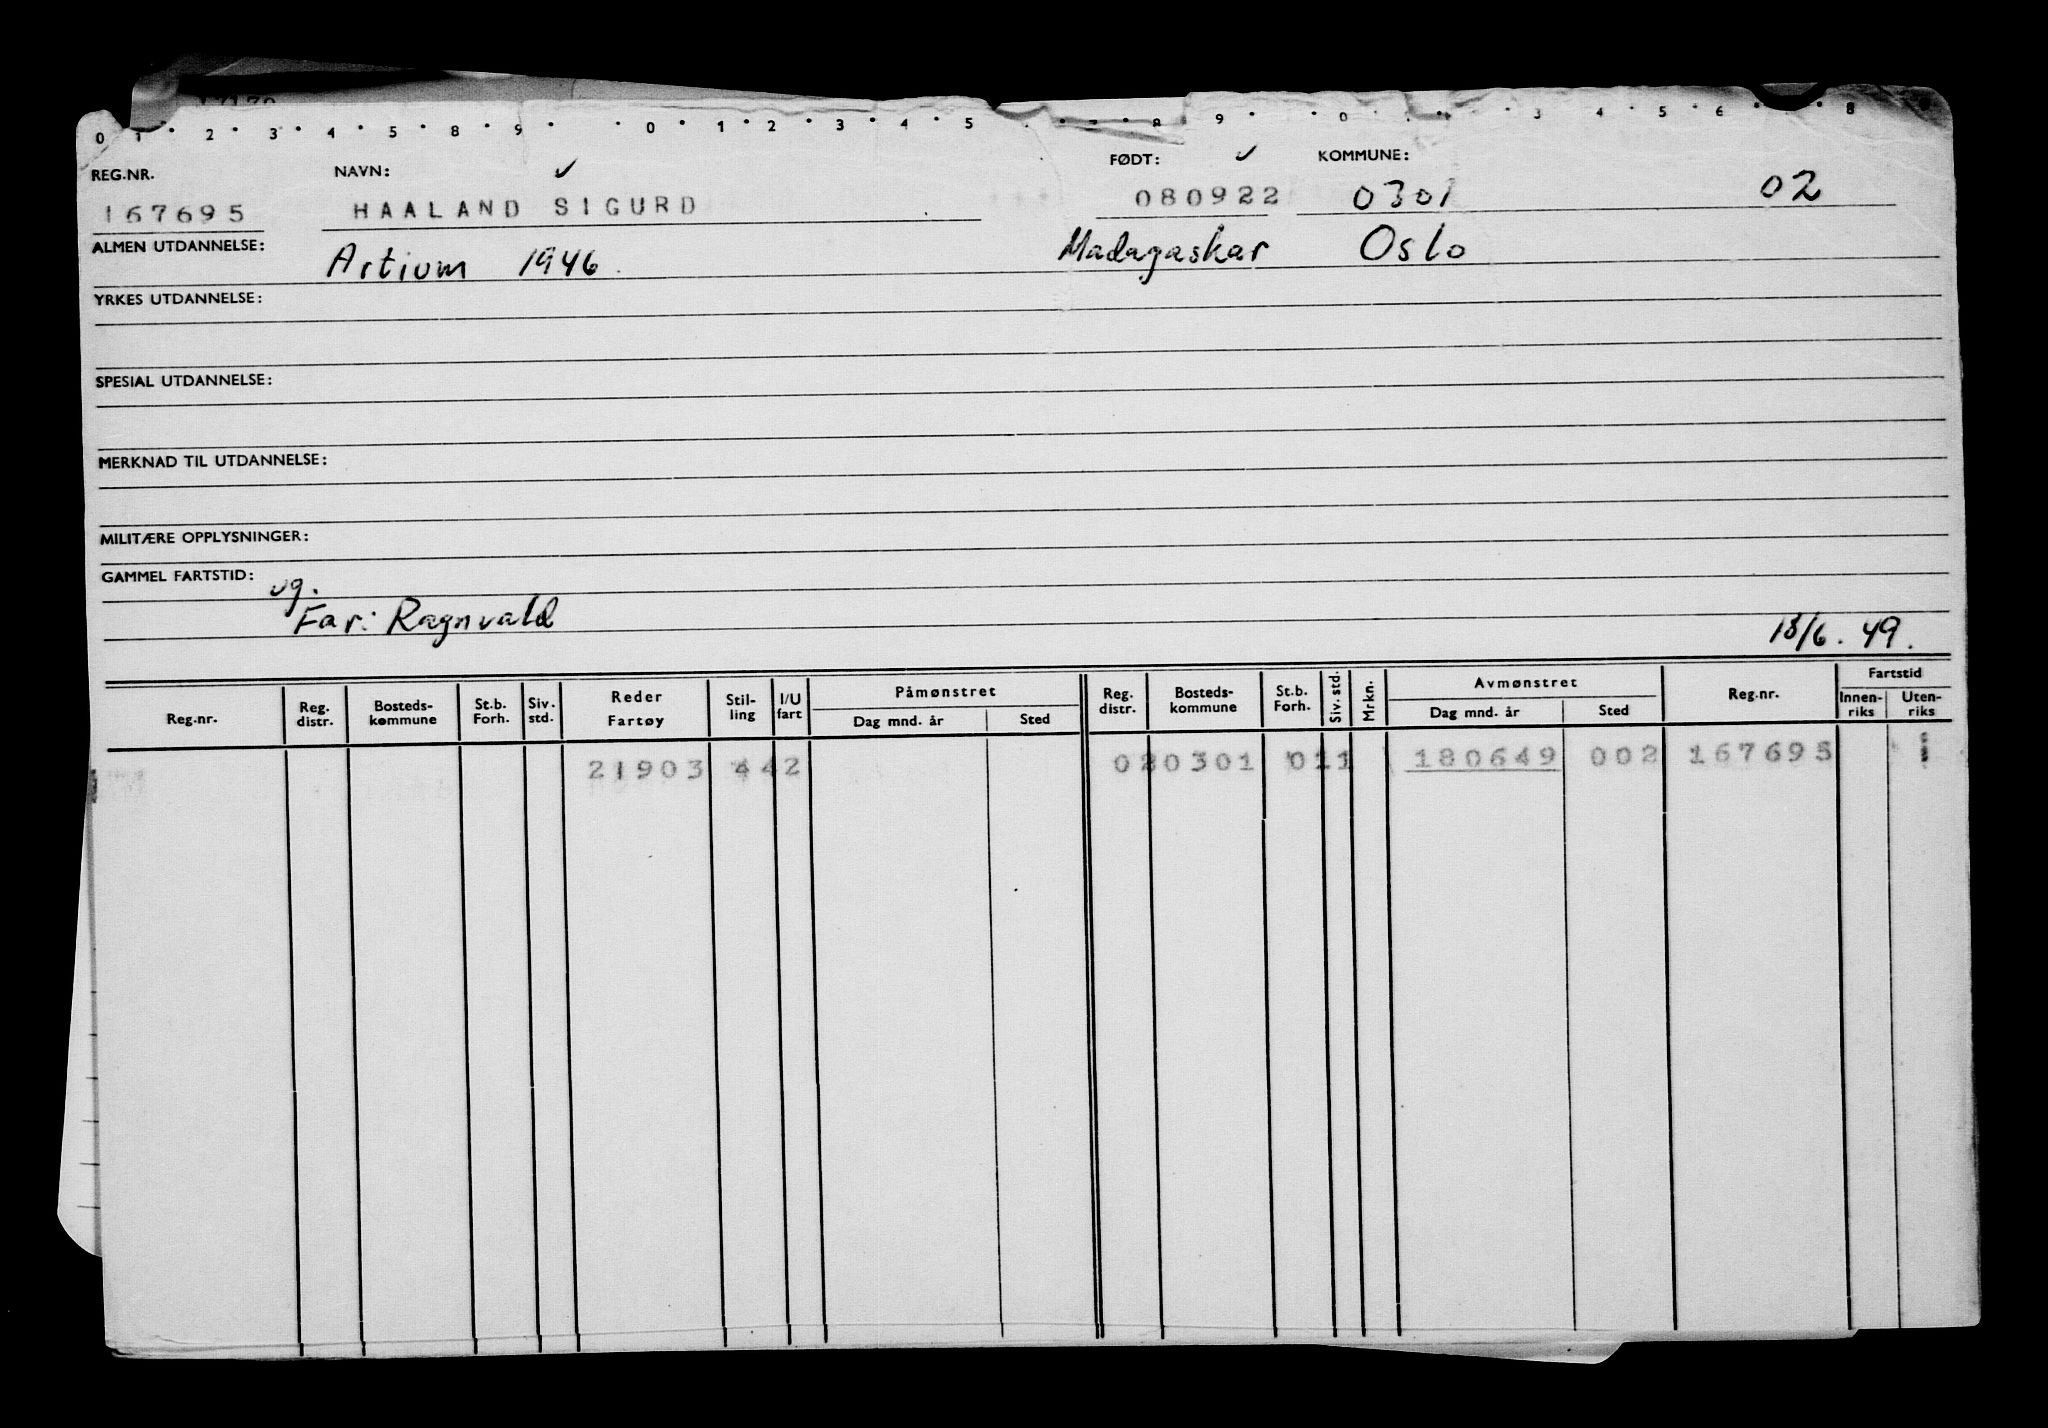 0 1 · 2 · 3 · 4 · 5 · 8 · 9 · · 0 · 1 · 2 · 3 · 4 · 5 · 8 · 9 · · 0 · 3 · 4 · 5 · 6 · 8
REG.NR. NAVN: ✓ FØDT: ✓ KOMMUNE:
167695 HAALAND SIGURD 080922 0301 02
ALMEN UTDANNELSE: Artium 1946 Madagaskar Oslo
YRKES UTDANNELSE:
SPESIAL UTDANNELSE:
MERKNAD TIL UTDANNELSE:
MILITÆRE OPPLYSNINGER:
GAMMEL FARTSTID: ug.
Far: Ragnvald 18/6. 49.
Reg.nr. Reg. distr. Bosteds-kommune St.b. Forh. Siv. std. Reder Fartøy Stil-ling I/U fart Påmønstret Dag mnd. år Sted Reg. distr. Bosteds-kommune St.b. Forh. Siv. std. Mrkn. Avmønstret Dag mnd. år Sted Reg.nr. Fartstid Innen-riks Uten-riks
21903 442 020301 011 180649 002 167695